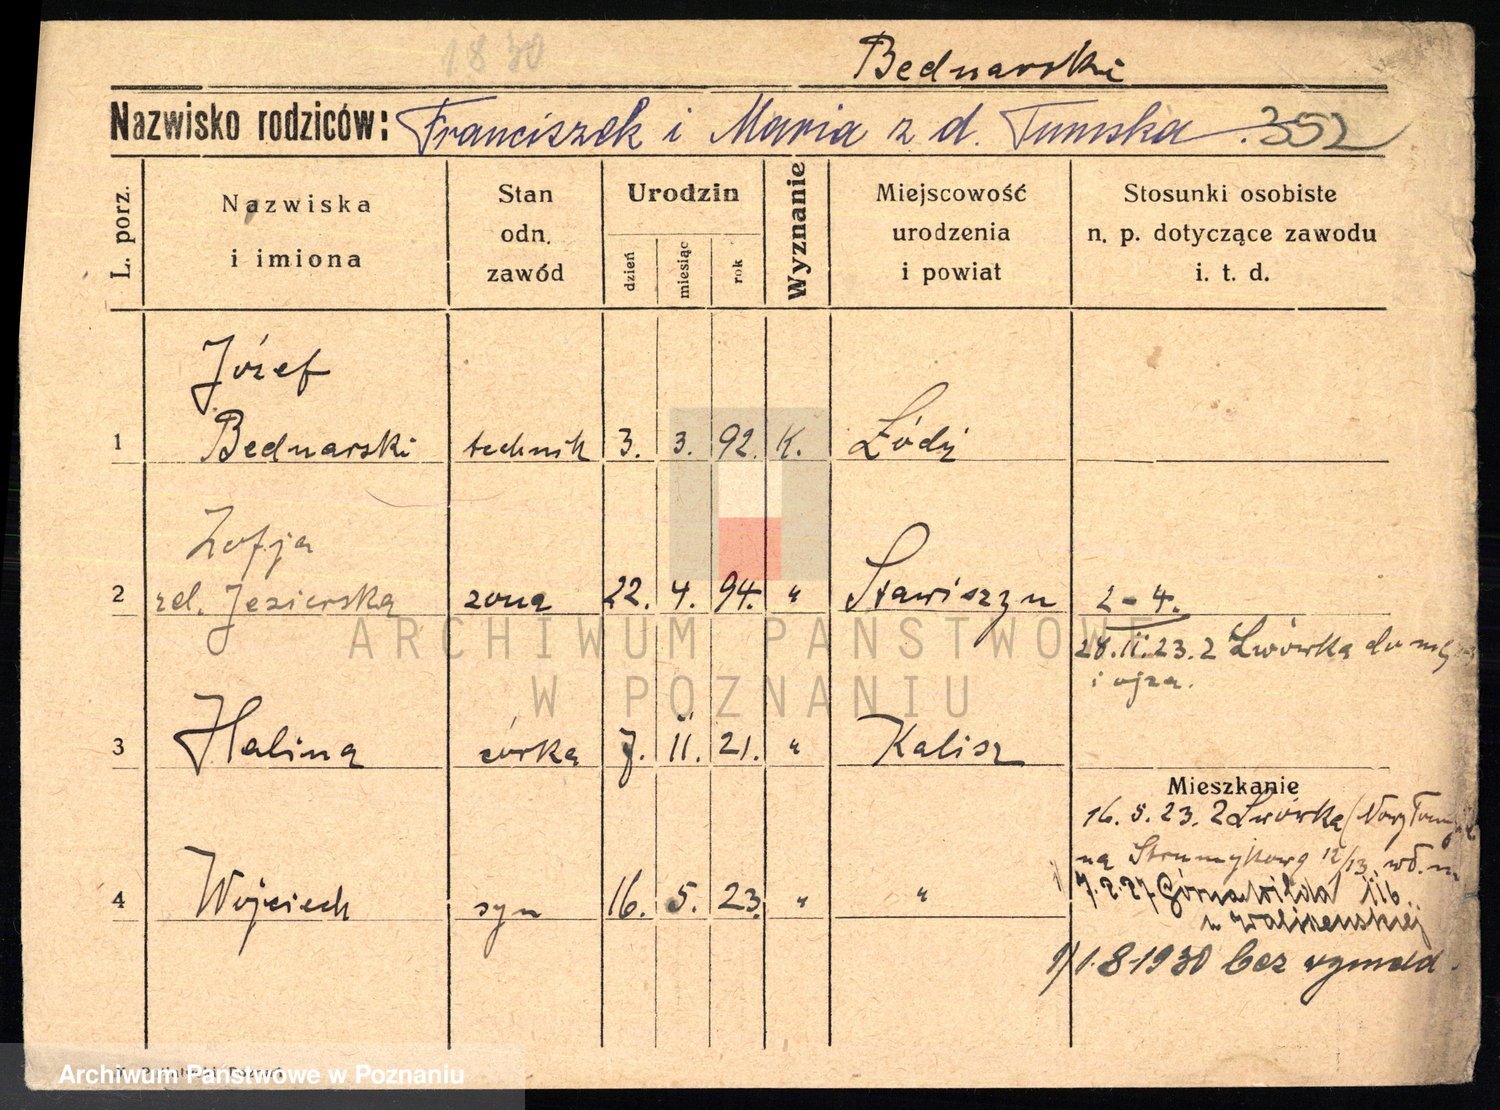 1830
Bednarski
Nazwisko rodziców: Franciszek i Maria z d. Tumska 352
L. porz.
Nazwiska
i imiona
Stan
odn.
zawód
Urodzin
dzień
miesiąc
rok
Wyznanie
Miejscowość
urodzenia
i powiat
Stosunki osobiste
n. p. dotyczące zawodu
i. t. d.
Józef
1 Bednarski technik 3. 3. 92. K. Łódź
Zofja
2 zd. Jezierska żona 22. 4. 94. " Stawiszyn 2-4.
28.II.23. z Lwówka do
i ojca.
3 Halina córka 7. II. 21. " Kalisz
Mieszkanie
16. 5. 23. z Lwówka
na Strumykową 12/13
4 Wojciech syn 16. 5. 23. " "
7.2.27 Górna Wilda 116
u
1.8-1930 bez wymeld.
ARCHIWUM PAŃSTWOWE
W POZNANIU
Archiwum Państwowe w Poznaniu